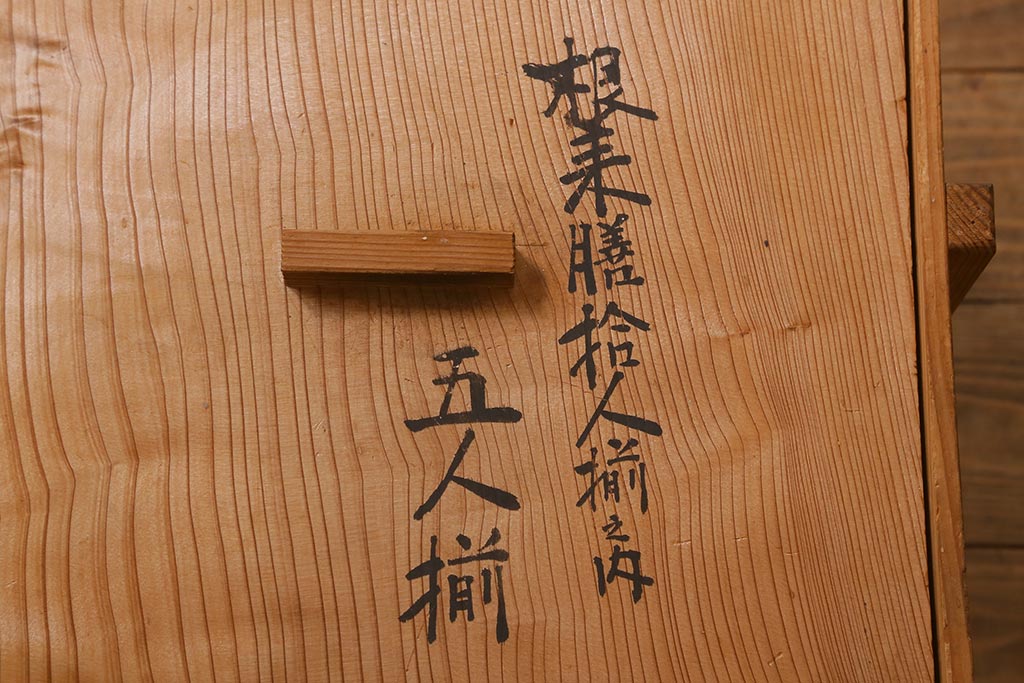 根来膳拾人揃之内
五人揃